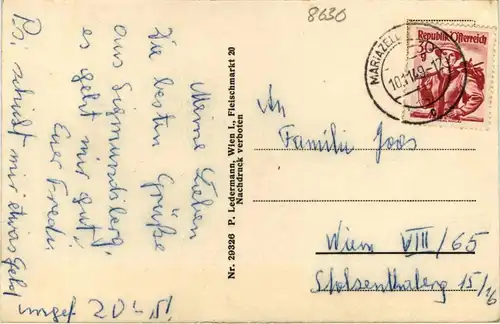 8630
Meine Lieben
Die besten Grüße
aus Sigmundsberg,
es geht mir gut,
Euer Fredi.
Ps. schickt mir etwas Geld
ungef. 20.- S!
Nr. 29326 P. Ledermann, Wien I., Fleischmarkt 20
Nachdruck verboten
An
Familie Joos
Wien VIII/65
Stolzenthalerg. 15/16
MARIAZELL
10.1.49-17
Republik Österreich
30
g